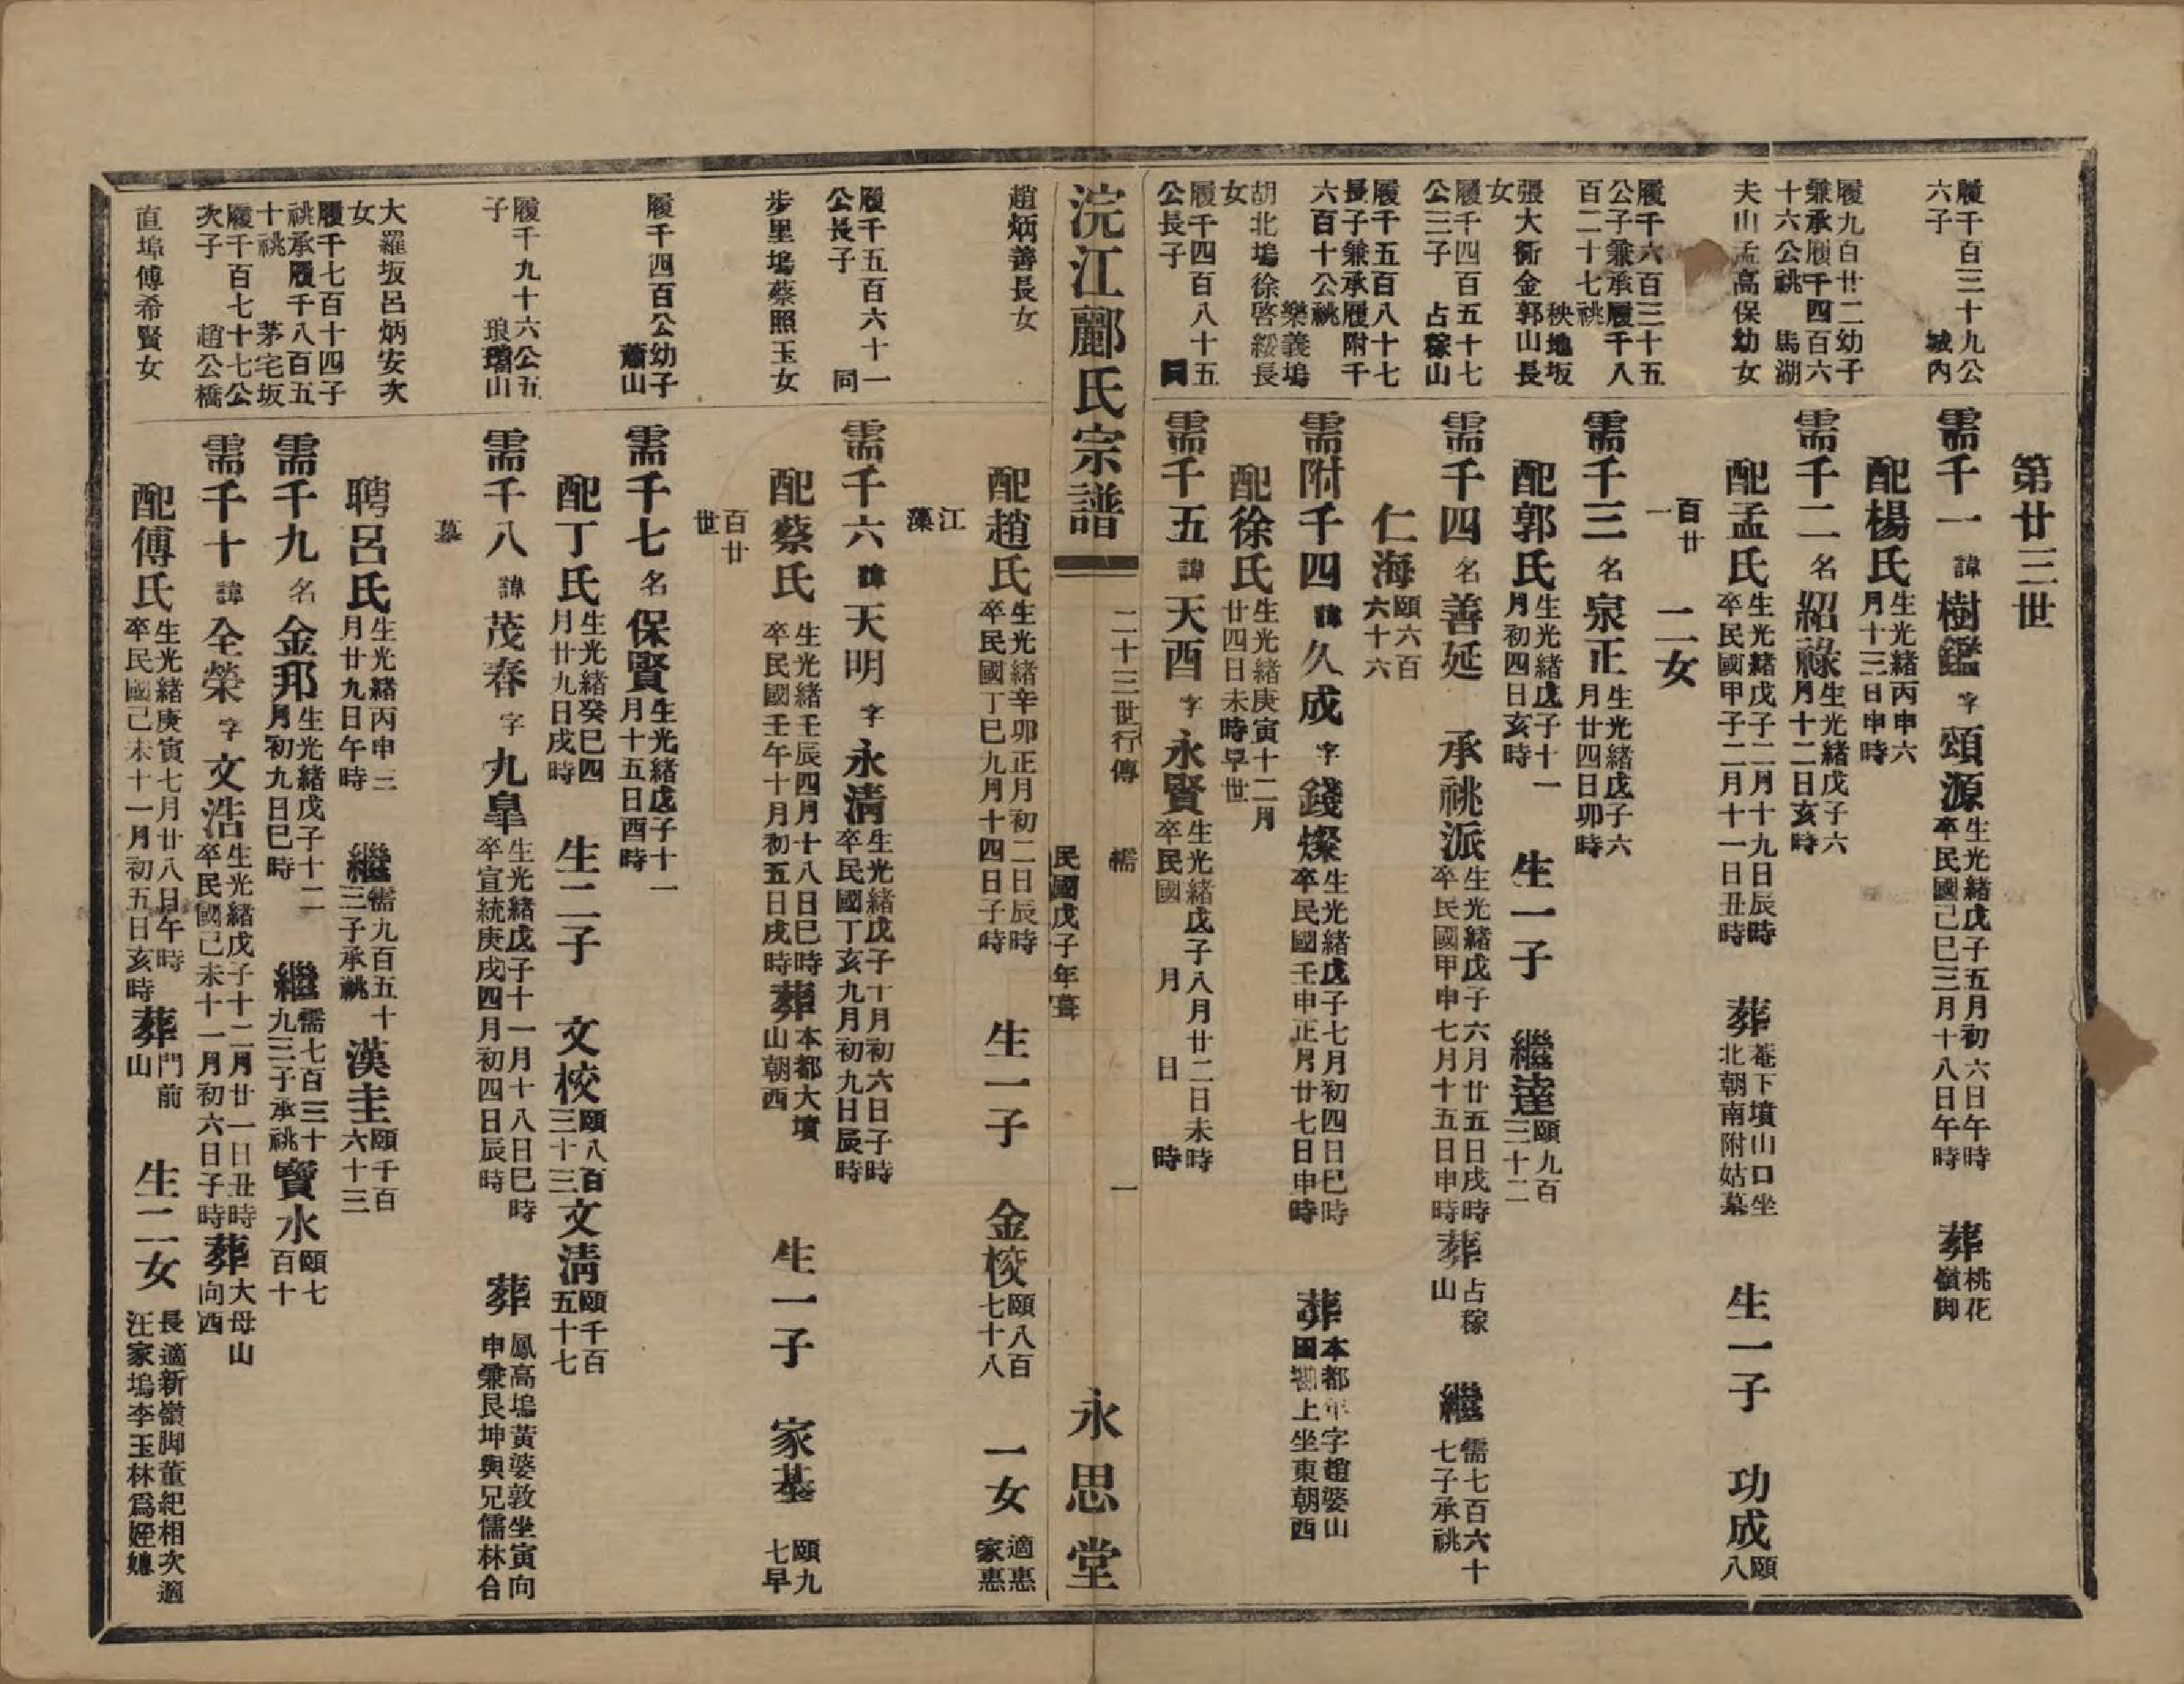 第廿三世
履千百三十九公
六子　城內
需千一 諱 樹鑑 字 頌源 生光緒戊子五月初六日午時 卒民國己巳三月十八日午時 葬 桃花嶺脚
配楊氏 生光緒丙申六月十三日申時
履九百廿二幼子
兼承履千四百六
十六公祧　馬湖
需千二 名 紹祿 生光緒戊子六月十二日亥時
夫山孟高保幼女
配孟氏 生光緒戊子二月十九日辰時 卒民國甲子二月十一日丑時 葬 菴下墳山口坐北朝南附姑墓 生一子 功成 頤八
百廿一 二女
履千六百三十五
公子兼承履千八
百二十七祧　秧地坂
需千三 名 泉正 生光緒戊子六月廿四日卯時
張大衝金郭山長
女
配郭氏 生光緒戊子十一月初四日亥時 生一子 繼達 頤九百三十二
履千四百五十七
公三子　占稼山
需千四 名 善延 承祧派 生光緒戊子六月廿五日戌時 卒民國甲申七月十五日申時 葬 占稼山 繼 需七百六十七子承祧
仁海 頤六百六十六
履千五百八十七
長子兼承履附千
六百十公祧　樂義塢
需附千四 諱 久成 字 錢燦 生光緒戊子七月初四日巳時 卒民國壬申正月廿七日申時 葬 本都年字趙婆山田磡上坐東朝西
胡北塢徐啓綏長
女
配徐氏 生光緒庚寅十二月廿四日未時早世
履千四百八十五
公長子　同
需千五 諱 天酉 字 永賢 生光緒戊子八月廿二日未時 卒民國　月　日　時
浣江酈氏宗譜　二十三世行傳　需　一　永思堂
民國戊子年葺
趙炳善長女
配趙氏 生光緒辛卯正月初二日辰時 卒民國丁巳九月十四日子時 生一子 金校 頤八百七十八 一女 適惠家惠
江藻
履千五百六十一
公長子　同
需千六 諱 天明 字 永清 生光緒戊子十月初六日子時 卒民國丁亥九月初九日辰時
步里塢蔡照玉女
配蔡氏 生光緒壬辰四月十八日巳時 卒民國壬午十月初五日戌時 葬 本都大墳山朝西 生一子 家基 頤九七早
百廿世
履千四百公幼子
蕭山
需千七 名 保賢 生光緒戊子十一月十五日酉時
配丁氏 生光緒癸巳四月廿九日戌時 生二子 文校 頤八百三十三 文清 頤千百五十七
履千九十六公五
子　琅瑠山
需千八 諱 茂春 字 九皐 生光緒戊子十一月十八日巳時 卒宣統庚戌四月初四日辰時 葬 鳳高塢黃婆敦坐寅向申兼艮坤與兄儒林合
墓
大羅坂呂炳安次
女
聘呂氏 生光緒丙申三月廿九日午時 繼 需九百五十三子承祧 漢圭 頤千百六十三
履千七百十四子
祧承履千八百五
十祧　茅宅坂
需千九 名 金邦 生光緒戊子十二月初九日巳時 繼 需七百三十九三子承祧 寶水 頤七百十
履千百七十七公
次子　趙公橋
需千十 諱 全榮 字 文浩 生光緒戊子十二月廿一日丑時 卒民國己未十一月初六日子時 葬 大母山向西
直埠傅希賢女
配傅氏 生光緒庚寅七月廿八日午時 卒民國己未十一月初五日亥時 葬 門前山 生二女 長適新嶺脚董紀相次適汪家塢李玉林爲姪媳